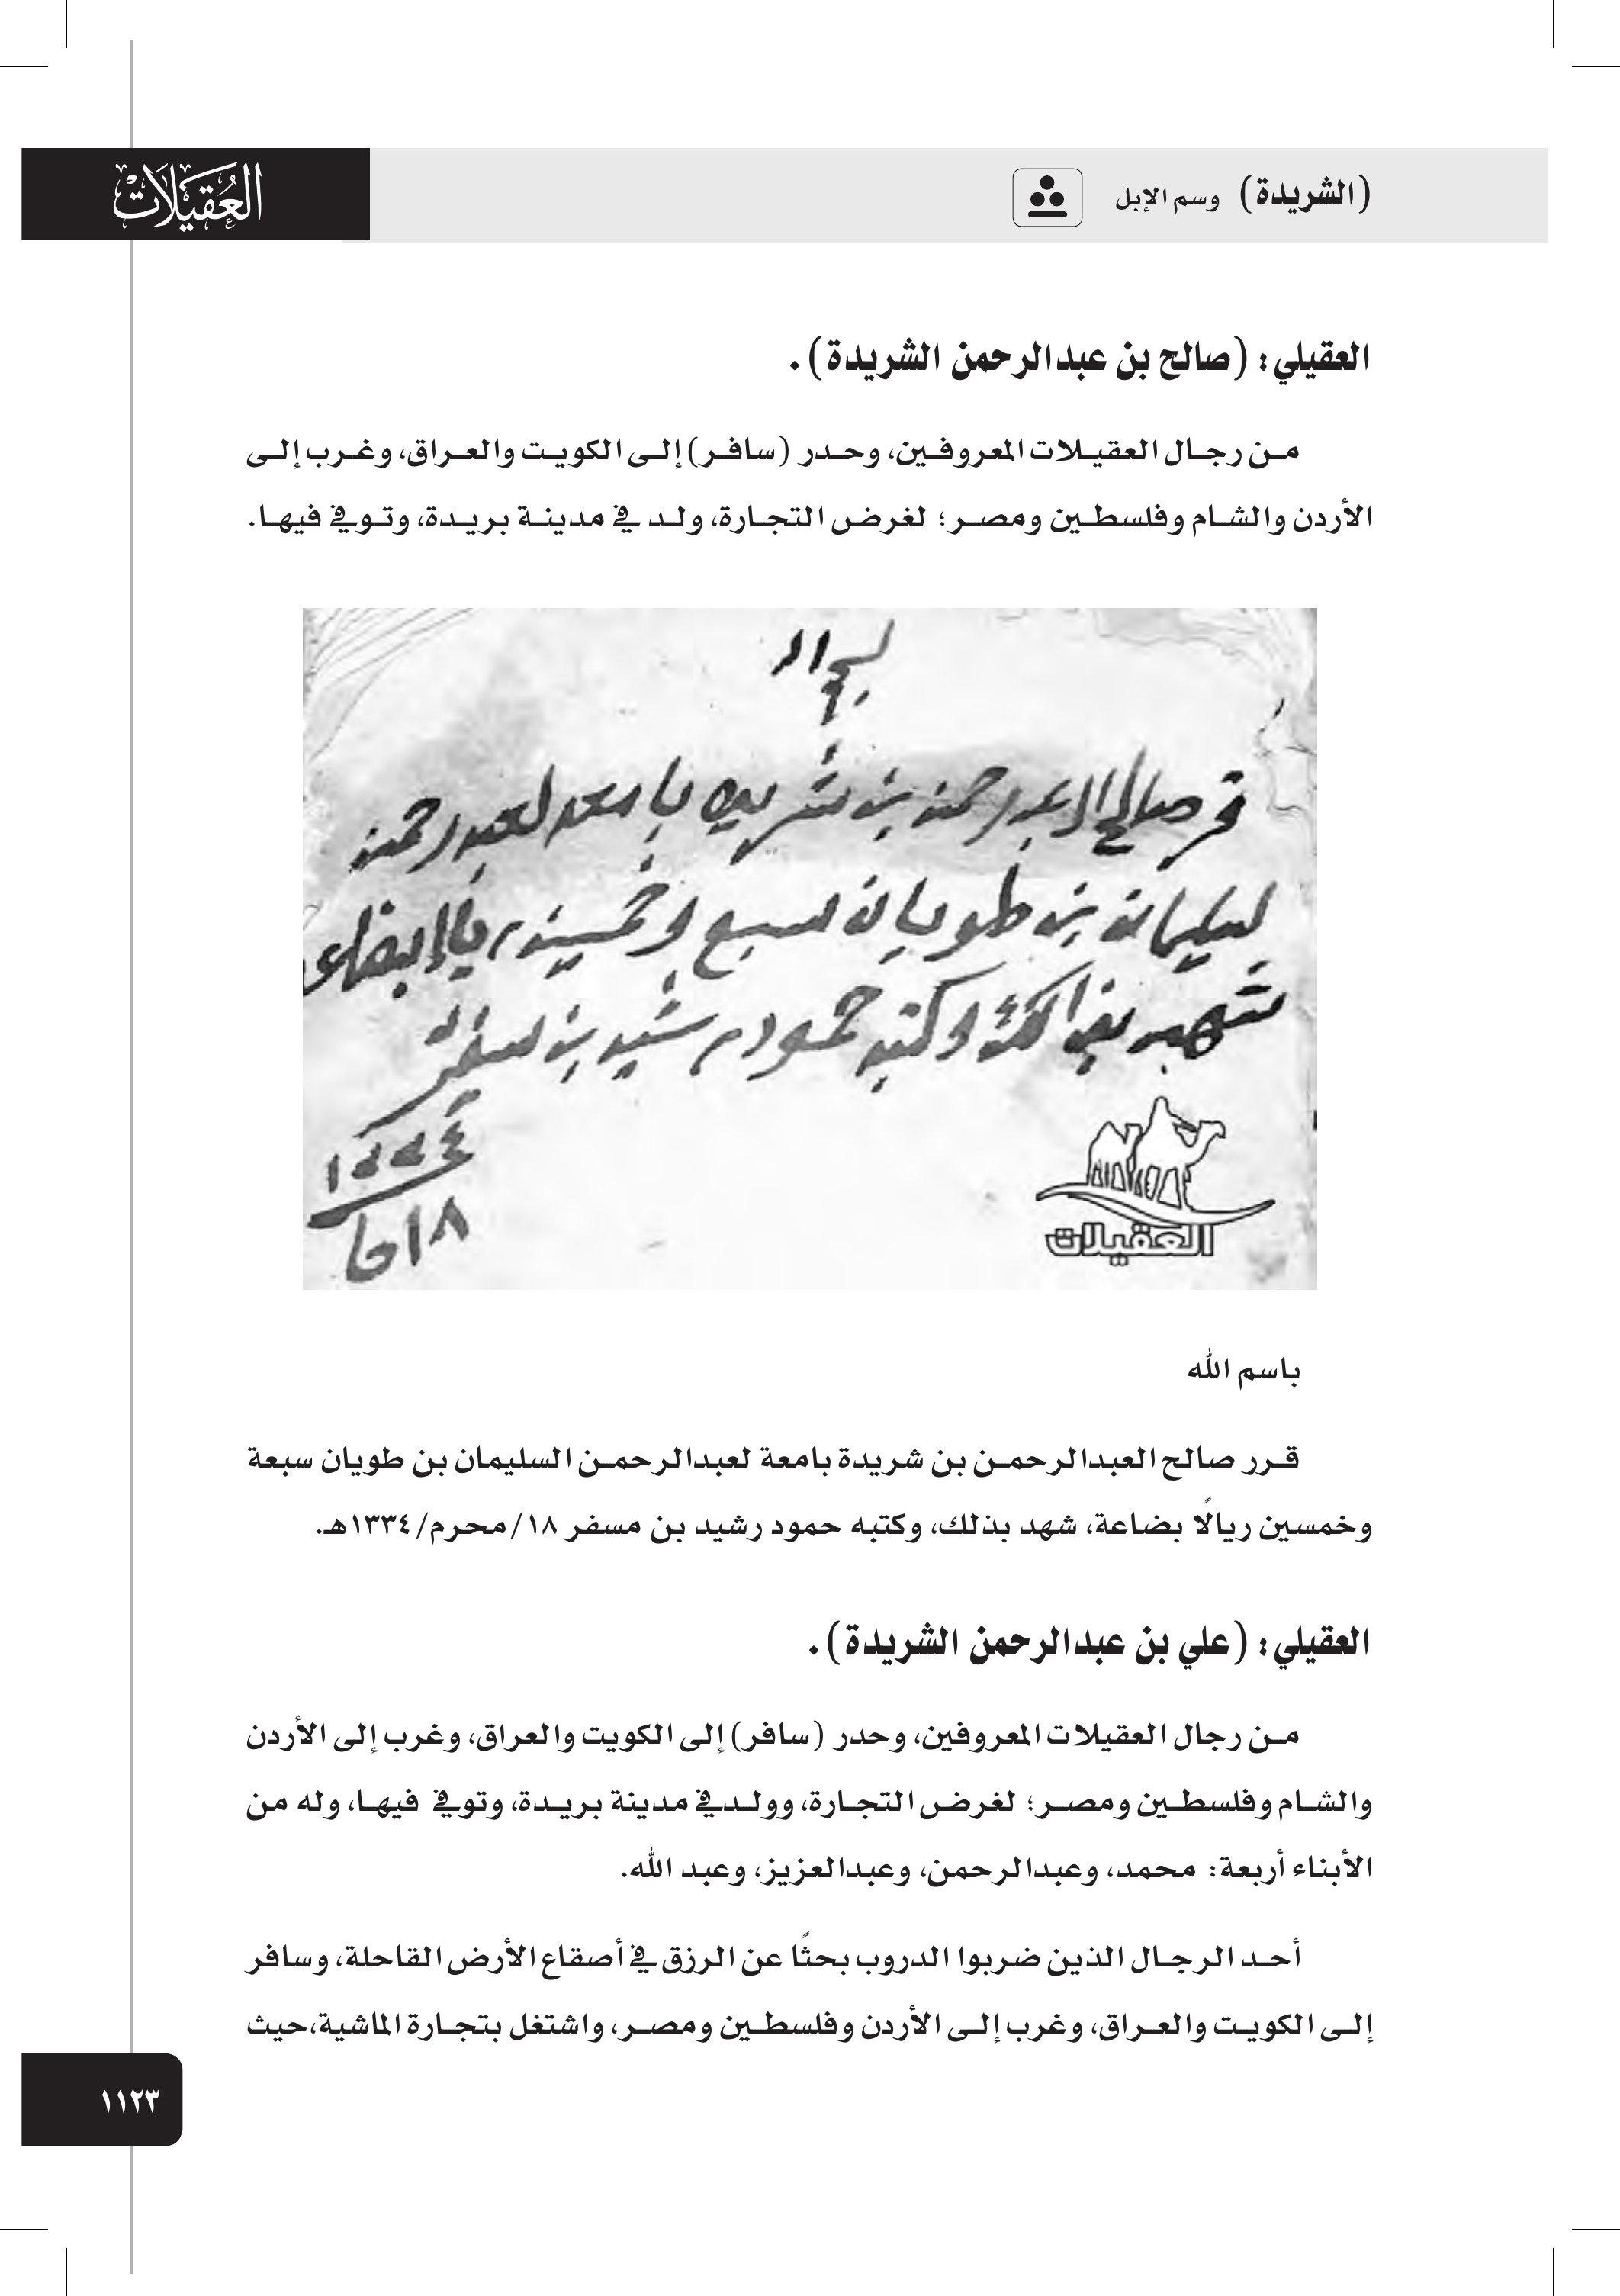 (الشريدة) وسم الإبل
العقيلات
العقيلي: (صالح بن عبدالرحمن الشريدة).
من رجال العقيلات المعروفين، وحدر (سافر) إلى الكويت والعراق، وغرب إلى
الأردن والشام وفلسطين ومصر؛ لغرض التجارة، ولد في مدينة بريدة، وتوفي فيها.
صالح العبدرحمن بن شريده بامعه لعبدرحمن
لسليمان بن طويان سبع وخمسين ريال بضاعه
شهد بذالك وكتبه حمود رشيد بن سفر
١٣٣٤
١٨ محرم
العقيلات
باسم الله
قرر صالح العبدالرحمن بن شريدة بامعة لعبدالرحمن السليمان بن طويان سبعة
وخمسين ريالًا بضاعة، شهد بذلك، وكتبه حمود رشيد بن مسفر ١٨/محرم/١٣٣٤هـ.
العقيلي: (علي بن عبدالرحمن الشريدة).
من رجال العقيلات المعروفين، وحدر (سافر) إلى الكويت والعراق، وغرب إلى الأردن
والشام وفلسطين ومصر؛ لغرض التجارة، وولد في مدينة بريدة، وتوفي فيها، وله من
الأبناء أربعة: محمد، وعبدالرحمن، وعبدالعزيز، وعبد الله.
أحد الرجال الذين ضربوا الدروب بحثًا عن الرزق في أصقاع الأرض القاحلة، وسافر
إلى الكويت والعراق، وغرب إلى الأردن وفلسطين ومصر، واشتغل بتجارة الماشية،حيث
١١٢٣